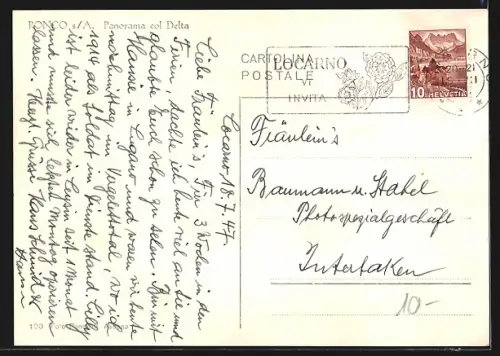 RONCO s/A. Panorama col Delta
CARTOLINA
POSTALE
LOCARNO
VI
INVITA
10
HELVETIA
Locarno 18.7.47.
Liebe Fräulein's, Für 3 Wochen in den
Ferien dachte ich heute viel an Sie und
glaubte Euch schon zu sehen. Bin mit
Hause in Lugano und waren wir heute
nachmittag im Vogelisttal, wo ich
1914 als Soldat in Dienste stand. Lilly
ist leider wieder in Leysin seit 1 Monat
und musste sich letzten Montag operieren
lassen. Herzl. Grüsse Hans Schmid &
Fräulein's
Baumann u. Stabel
Photospezialgeschäft
Interlaken
10-
100